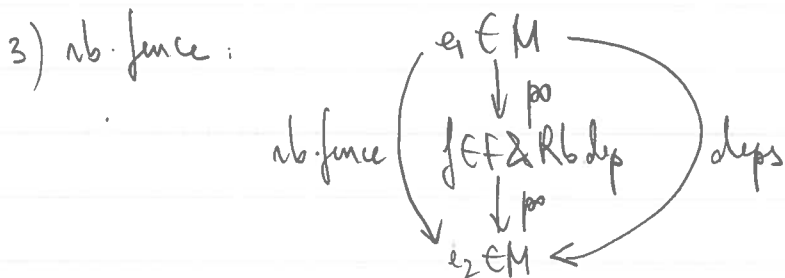 3) rb.fence :
e₁ ∈ M
po
rb.fence
f ∈ F & Rbdep
deps
po
e₂ ∈ M